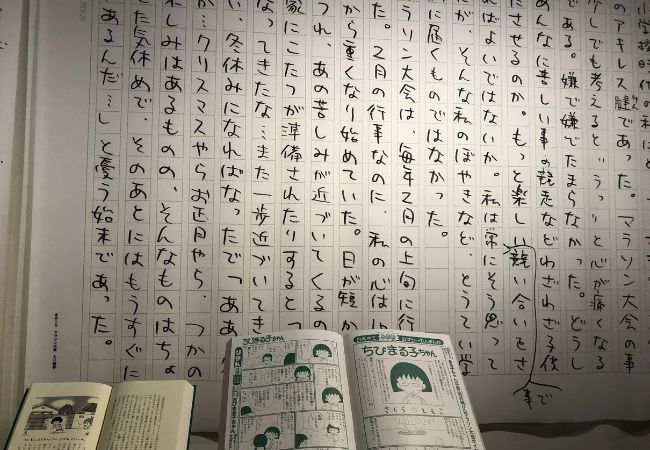 小学校時代の私にと
のアキレス腱であった。マラソン大会の事
少しでも考えると“うっ”と心が痛くなる
である。嫌で嫌でたまらなかった。どうし
あんなに苦しい事の競走などわざわざ子供
たさせるのか。もっと楽しい競い合いをさ
事で
ればよいではないか。私は常にそう思って
たが、そんな私のぼやきなど、とうてい学
に届くものではなかった。
ラソン大会は、毎年2月の上旬に行
た。2月の行事なのに、私の心は
から重くなり始めていた。日が短か
つれ、あの苦しみが近づいてくるの
家にこたつが準備されたりすると「
なってきたな…また一歩近づいてき
い、冬休みになればなったで「ああ
か…クリスマスやらお正月やら、つかの
しみはあるものの、そんなものはちょ
した気休めで、そのあとにはもうすぐに
あるんだ…」と憂う始末であった。
20×20
ちびまる子ちゃん
さくらももこ
ちびまる子ちゃん